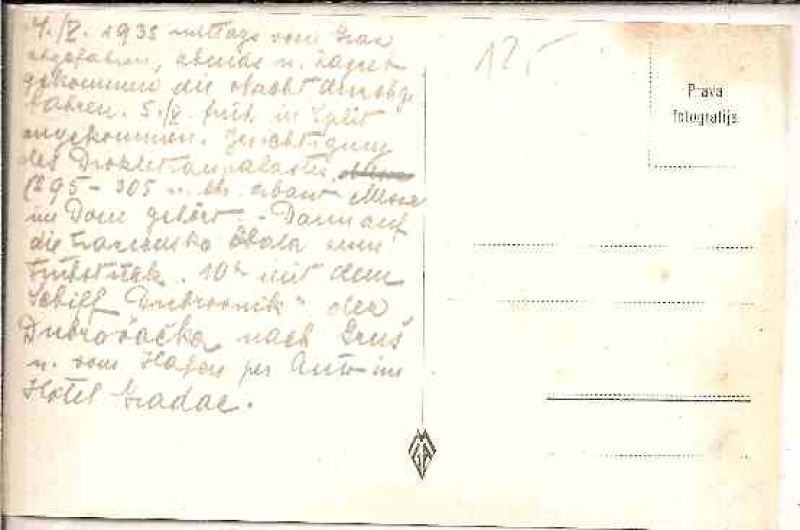 4./V. 1935 mittags vom Graz
abgefahren, abends n. Zagreb
gekommen die Nacht durchge
fahren. 5./V. früh in Split
angekommen. Besichtigung
des Diokletianpalastes
(295-305 n. chr. erbaut Messe
im Dom gehört. - Dann auf
die Obala zum
Frühstück. 10h mit dem
Schiff "Dubrovnik" der
Dubrovačka nach Gruž
u. vom Hafen per Auto ins
Hotel Gradac.
12,-
Prava
fotografija